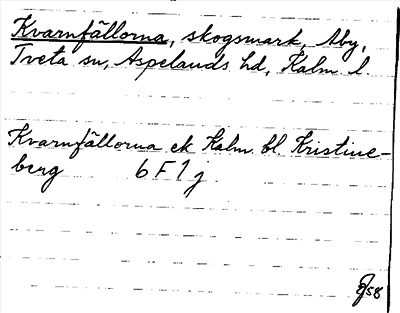 Kvarnfällorna, skogsmark, Åby,
Tveta sn, Aspelands hd, Kalm. l.
Kvarnfällorna ek Kalm. bl. Kristine-
berg 6 F 1 j
58